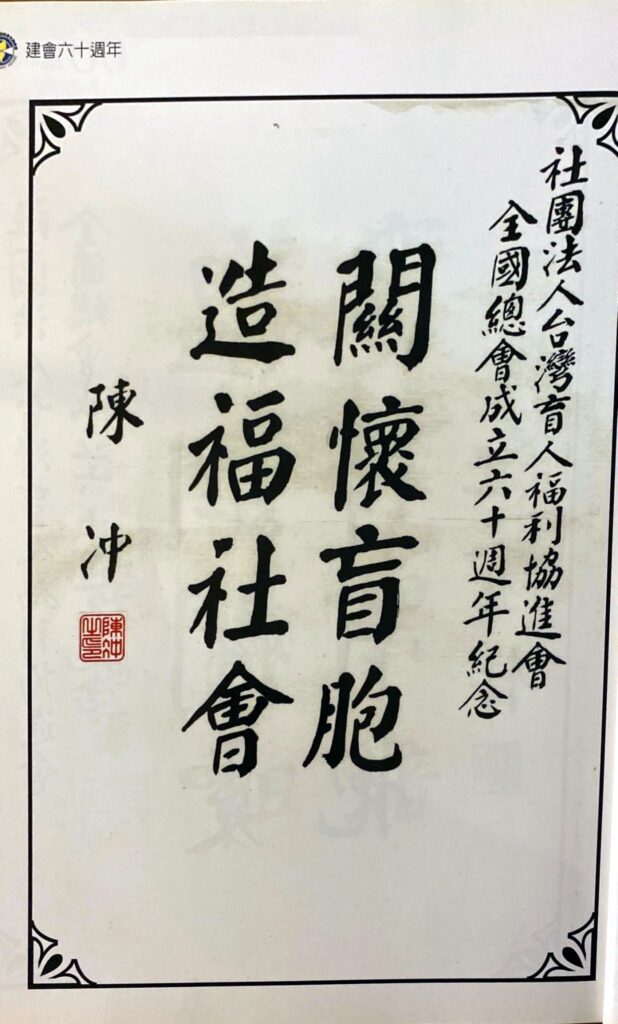 建會六十週年
社團法人台灣盲人福利協進會
全國總會成立六十週年紀念
關懷盲胞
造福社會
陳冲
陳冲之印